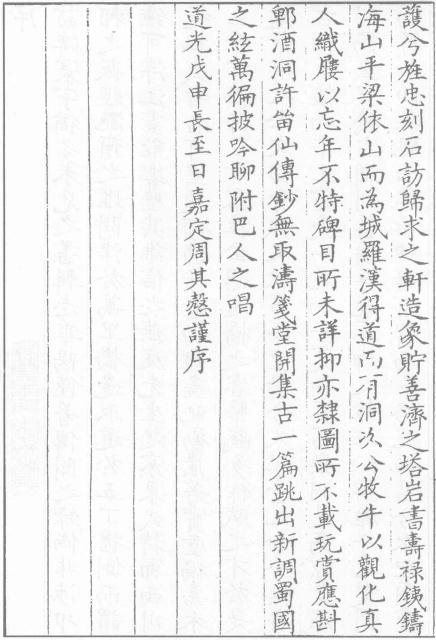 護兮旌忠刻石訪歸求之軒造象貯善濟之塔岩書壽禄銕鑄
海山平梁依山而為城羅漢得道而有洞次公牧牛以觀化真
人織屨以忘年不特碑目所未詳抑亦隸圖所不載玩賞應斟
郫酒洞許笛仙傳鈔無取濤箋堂開集古一篇跳出新調蜀國
之絃萬徧披吟聊附巴人之唱
道光戊申長至日嘉定周其慤謹序